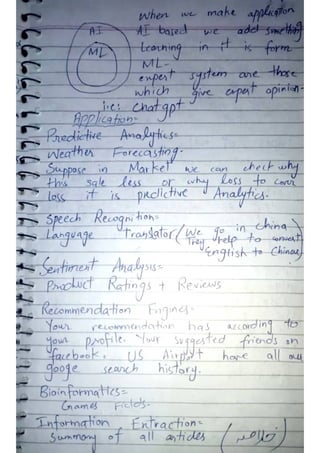 when we make application
AI
AI based we add something
ML
Learning in it is form
ML-
expert system are those
which give expert opinion-
i.e: chatgpt
Application-
Predictive Analytics=
Weather Forecasting-
Suppose in Market we can check why
this sale less or why loss to cover
loss it is predictive Analytics.
Speech Recognition=
Language Translator (We go in china
They help to convert
English to Chinese)
Sentiment Analysis=
Product Ratings + Reviews
Recommendation Engines-
Your recommendation has according to
your profile. Your suggested friends on
facebook. US Airport have all our
googe search history.
Bioinformatics=
Games Fields.
Information Extraction=
Summary of all articles (خلاصہ)